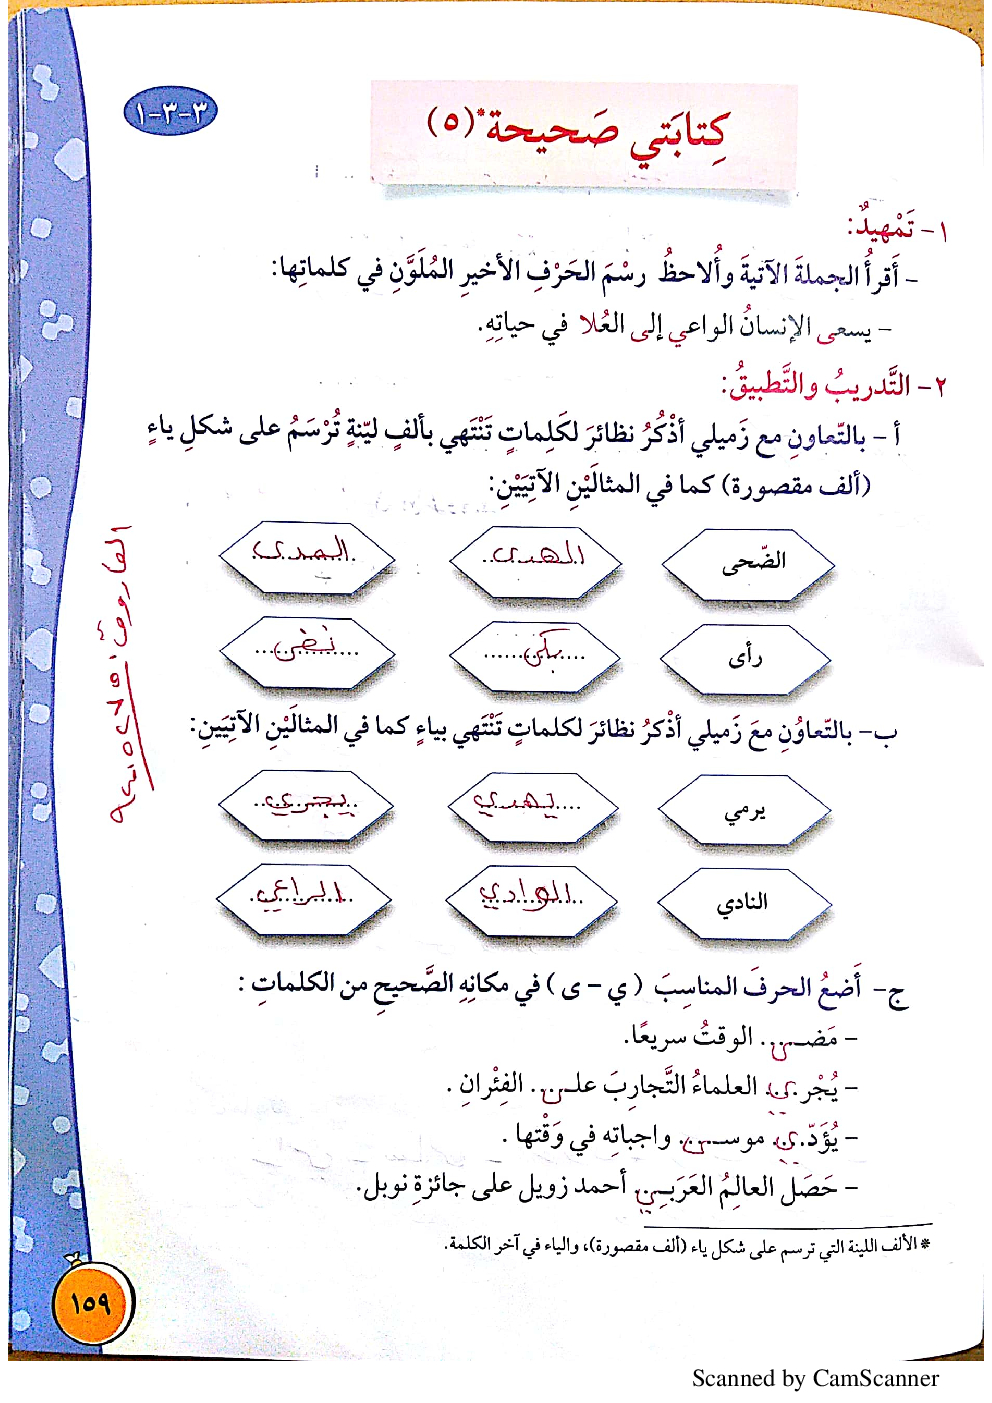 ٣-٣-١
كِتابَتي صَحيحة*(٥)
١- تَمْهيدٌ:
- أَقرأُ الجملةَ الآتيةَ وأُلاحظُ رسْمَ الحَرْفِ الأخيرِ المُلَوَّنِ في كلماتِها:
- يسعى الإنسانُ الواعي إلى العُلا في حياتِهِ.
٢- التَّدريبُ والتَّطبيقُ:
أ- بالتّعاونِ مع زَميلي أذْكُرُ نظائرَ لكَلِماتٍ تَنْتَهي بألفٍ ليّنةٍ تُرْسَمُ على شكلِ ياءٍ
(ألف مقصورة) كما في المثالَيْنِ الآتِيَيْنِ:
الضّحى الهدى المدى
رأى بكى
ب- بالتّعاوُنِ معَ زَميلي أذْكُرُ نظائرَ لكلماتٍ تَنْتَهي بياءٍ كما في المثالَيْنِ الآتِيَينِ:
يرمي يهدي يجري
النادي الوادي الراعي
ج- أَضعُ الحرفَ المناسِبَ (ي - ى) في مكانِهِ الصَّحيحِ من الكلماتِ:
- مَضـى الوقتُ سريعًا.
- يُجْرِي العلماءُ التَّجارِبَ علـى الفِئْرانِ.
- يُؤَدّي موسـى واجباتِه في وَقْتها.
- حَصَل العالِمُ العَرَبـي أحمد زويل على جائزةِ نوبل.
* الألف اللينة التي ترسم على شكل ياء (ألف مقصورة)، والياء في آخر الكلمة.
١٥٩
Scanned by CamScanner